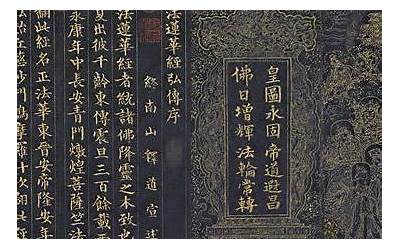 皇圖永固 帝道遐昌
佛日增輝 法輪常轉
法蓮華經弘傳序
終南山釋道宣述
法蓮華經者統諸佛降靈之本致也
夏出彼千齡東傳震旦三百餘載西
永康年中長安青門燉煌菩薩竺法
翻此經名正法華東晉安帝隆安年
沙門鳩摩羅什次翻